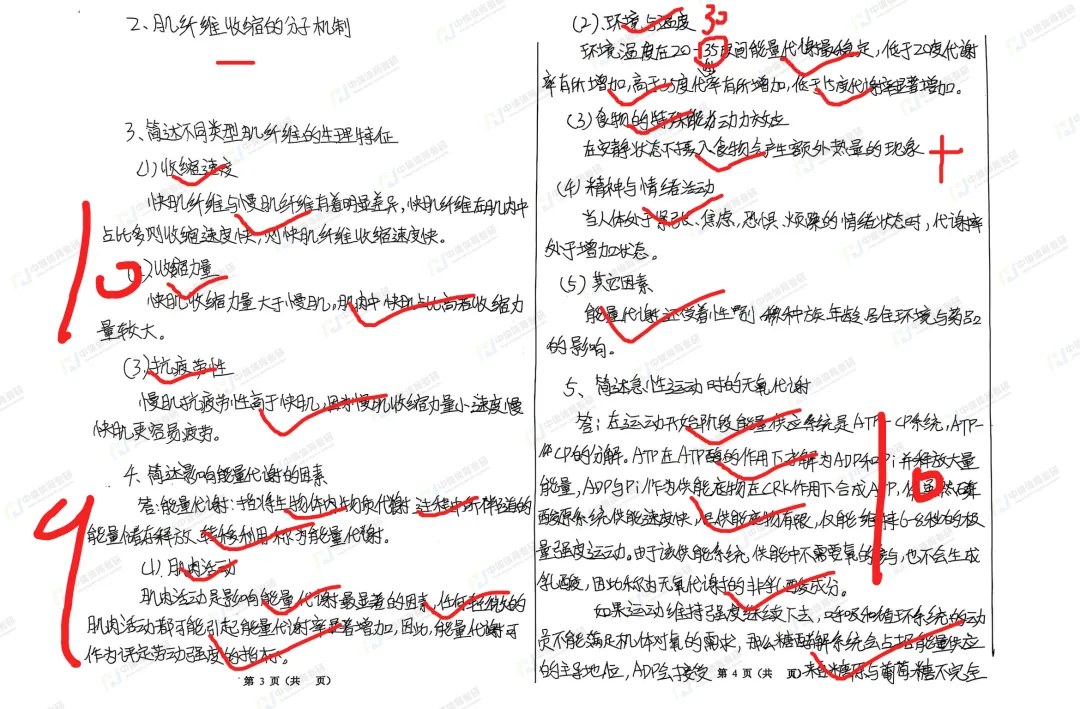 2、肌纤维收缩的分子机制
3、简述不同类型肌纤维的生理特征
(1)收缩速度
快肌纤维与慢肌纤维有着明显差异,快肌纤维在肌肉中
占比多则收缩速度快,则快肌纤维收缩速度快。
(2)收缩力量
快肌收缩力量大于慢肌,肌肉中快肌占比高者收缩力
量较大。
(3)抗疲劳性
慢肌抗疲劳性高于快肌,因为慢肌收缩力量小速度慢
快肌更容易疲劳。
10
4、简述影响能量代谢的因素
答:能量代谢:指得生物体内物质代谢过程中所伴随的
能量储存释放、转移利用称为能量代谢。
(1)肌肉活动
肌肉活动是影响能量代谢最显著的因素,任何轻微的
肌肉活动都可能引起能量代谢率显著增加,因此,能量代谢可
作为评定劳动强度的指标。
9
第 3 页(共 页)
(2)、环境与温度 30
环境温度在20-35度间能量代谢最稳定,低于20度代谢
率有所增加,高于35度代谢率有所增加,低于15度代谢率显著增加。
(3)食物的特殊能动力效应
在安静状态下摄入食物会产生额外热量的现象
(4)精神与情绪活动
当人体处于紧张、焦虑、恐惧、烦躁的情绪状态时,代谢率
处于增加状态。
(5)其它因素
能量代谢还受着性别、种族、年龄、居住环境与药品
的影响。
5、简述急性运动时的无氧代谢
答:在运动开始阶段能量供应系统是ATP-CP系统,ATP-
CP的分解。ATP在ATP酶的作用下分解为ADP和Pi并释放大量
能量,ADP与Pi作为供能底物在CRK作用下合成ATP,虽然磷
酸原系统供能速度快,但供能底物有限,仅能维持6-8秒的极
量强度运动。由于该供能系统,供能中不需要氧的参与,也不会生成
乳酸,因此称为无氧代谢的非乳酸成分。
如果运动维持强度继续下去,呼吸和循环系统的动
员不能满足机体对氧的需求,那么糖酵解系统会占据能量供应
的主导地位,ADP会接受来自糖原与葡萄糖不完全
10
第 4 页(共 页)